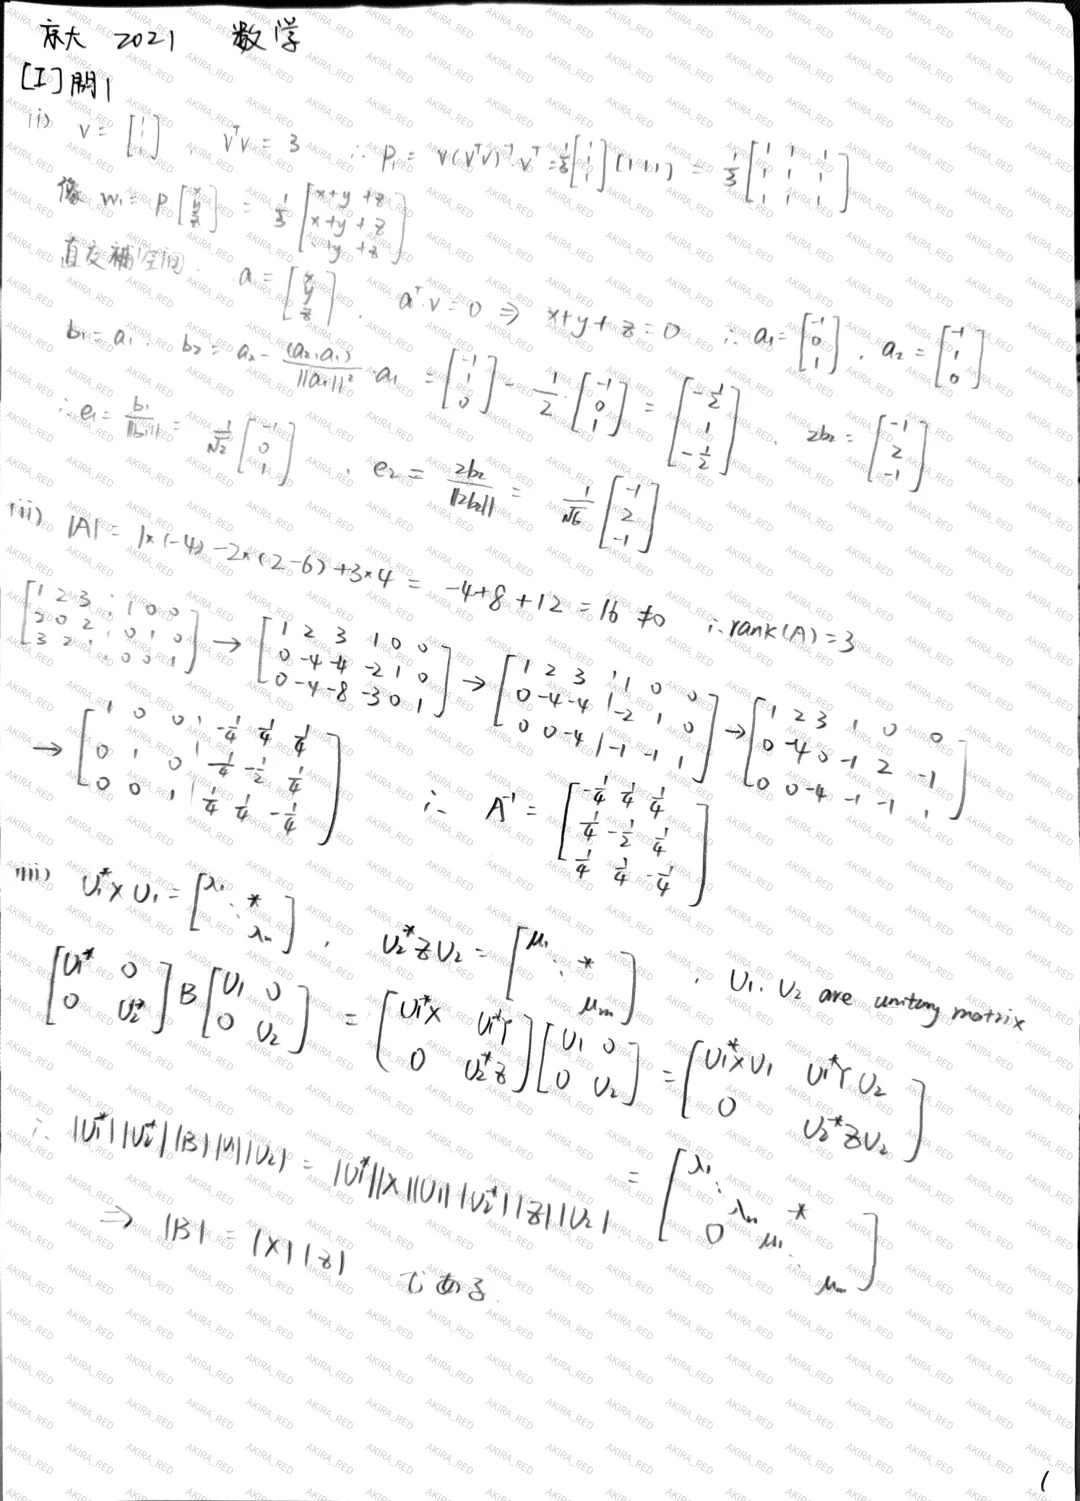 京大 2021 数学
[I] 問1
(i) v = [1 1 1] , vᵀv = 3 ∴ P₁ = v(vᵀv)⁻¹·vᵀ = 1/3 [1 1 1] [1 1 1] = 1/3 [1 1 1; 1 1 1; 1 1 1]
像 w₁ = P [x y z] = 1/3 [x+y+z; x+y+z; x+y+z]
直交補空間. a = [x y z] , aᵀ·v = 0 ⇒ x+y+z = 0 ∴ a₁ = [-1 0 1] , a₂ = [-1 1 0]
b₁ = a₁ . b₂ = a₂ - (a₂,a₁)/||a₁||² ·a₁ = [-1 1 0] - 1/2 · [-1 0 1] = [-1/2 1 -1/2] , 2b₂ = [-1 2 -1]
∴ e₁ = b₁/||b₁|| = 1/√2 [-1 0 1] , e₂ = 2b₂/||2b₂|| = 1/√6 [-1 2 -1]
(ii) |A| = 1×(-4) -2×(2-6) +3×4 = -4+8+12 = 16 ≠0 ∴ rank(A)=3
[1 2 3 1 0 0; 2 0 2 0 1 0; 3 2 1 0 0 1] → [1 2 3 1 0 0; 0 -4 -4 -2 1 0; 0 -4 -8 -3 0 1] → [1 2 3 1 0 0; 0 -4 -4 -2 1 0; 0 0 -4 -1 -1 1] → [1 2 3 1 0 0; 0 -4 0 -1 2 -1; 0 0 -4 -1 -1 1]
→ [1 0 0 -1/4 1/4 1/4; 0 1 0 1/4 -1/2 1/4; 0 0 1 1/4 1/4 -1/4] ∴ A⁻¹ = [-1/4 1/4 1/4; 1/4 -1/2 1/4; 1/4 1/4 -1/4]
(iii) U₁*XU₁ = [λ₁ ⋱ * λn] , U₂*ZU₂ = [μ₁ ⋱ * μm] , U₁. U₂ are unitary matrix
[U₁* 0; 0 U₂*] B [U₁ 0; 0 U₂] = [U₁*X U₁*Y; 0 U₂*Z] [U₁ 0; 0 U₂] = [U₁*XU₁ U₁*YU₂; 0 U₂*ZU₂]
∴ |U₁*||U₂*||B||U₁||U₂| = |U₁*||X||U₁||U₂*||Z||U₂| = [λ₁ ⋱ λn * 0 μ₁ ⋱ μm]
⇒ |B| = |X||Z| である.
1
AKIRA_RED